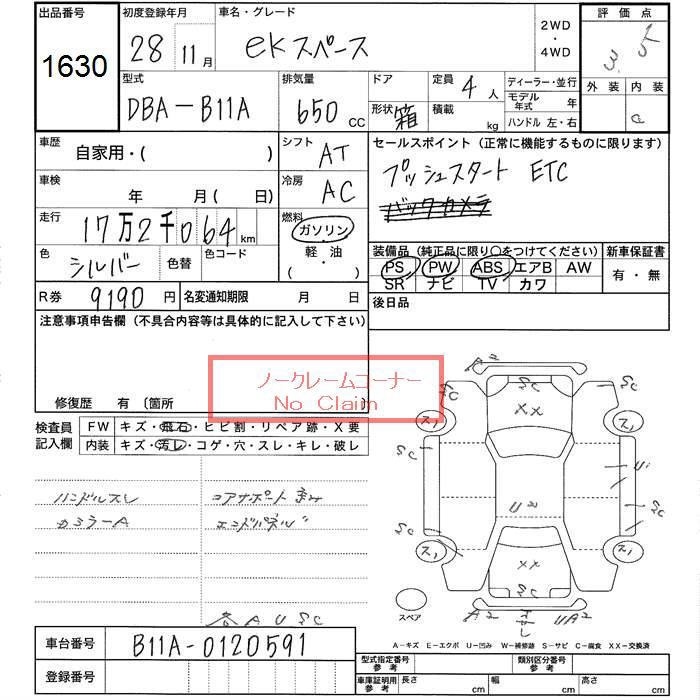 出品番号
1630
初度登録年月
28年11月
車名・グレード
ekスペース
2WD・4WD
評価点
3.5
外装 内装
C
型式
DBA-B11A
排気量
650 CC
ドア形状 箱
定員 4人
積載 kg
ディーラー・並行
モデル年式 年
ハンドル 左・右
車歴
自家用・( )
シフト AT
セールスポイント (正常に機能するものに限ります)
プッシュスタート ETC
バックカメラ
車検 年 月( 日)
冷房 AC
走行
17万2千064km
燃料
ガソリン・軽油・( )
色
シルバー
色替
色コード
装備品(純正品に限り○をつけてください)
PS PW ABS エアB AW
SR ナビ TV カワ
新車保証書
有・無
R券 9190円
名変通知期限 月 日
後日品
注意事項申告欄(不具合内容等は具体的に記入して下さい)
ノークレームコーナー
No Claim
修復歴 有〔箇所
検査員記入欄
FW キズ・飛石・ヒビ割・リペア跡・X要
内装 キズ・汚レ・コゲ・穴・スレ・キレ・破レ
ハンドルスレ
コアサポート歪み
カラーA
エンドパネル〃
A U S C
A2
SC
XX
SC
C
ス1
ス1
SC
Ui
U2
SC
SC
ス1
ス1
XX
SC
A2
UA2
スペア
A-キズ E-エクボ U-凹み W-補修跡 S-サビ C-腐食 XX-交換済
車台番号
B11A-0120591
登録番号
型式指定番号 参考
類別区分番号 参考
車庫証明用 参考 長さ cm 幅 cm 高さ cm